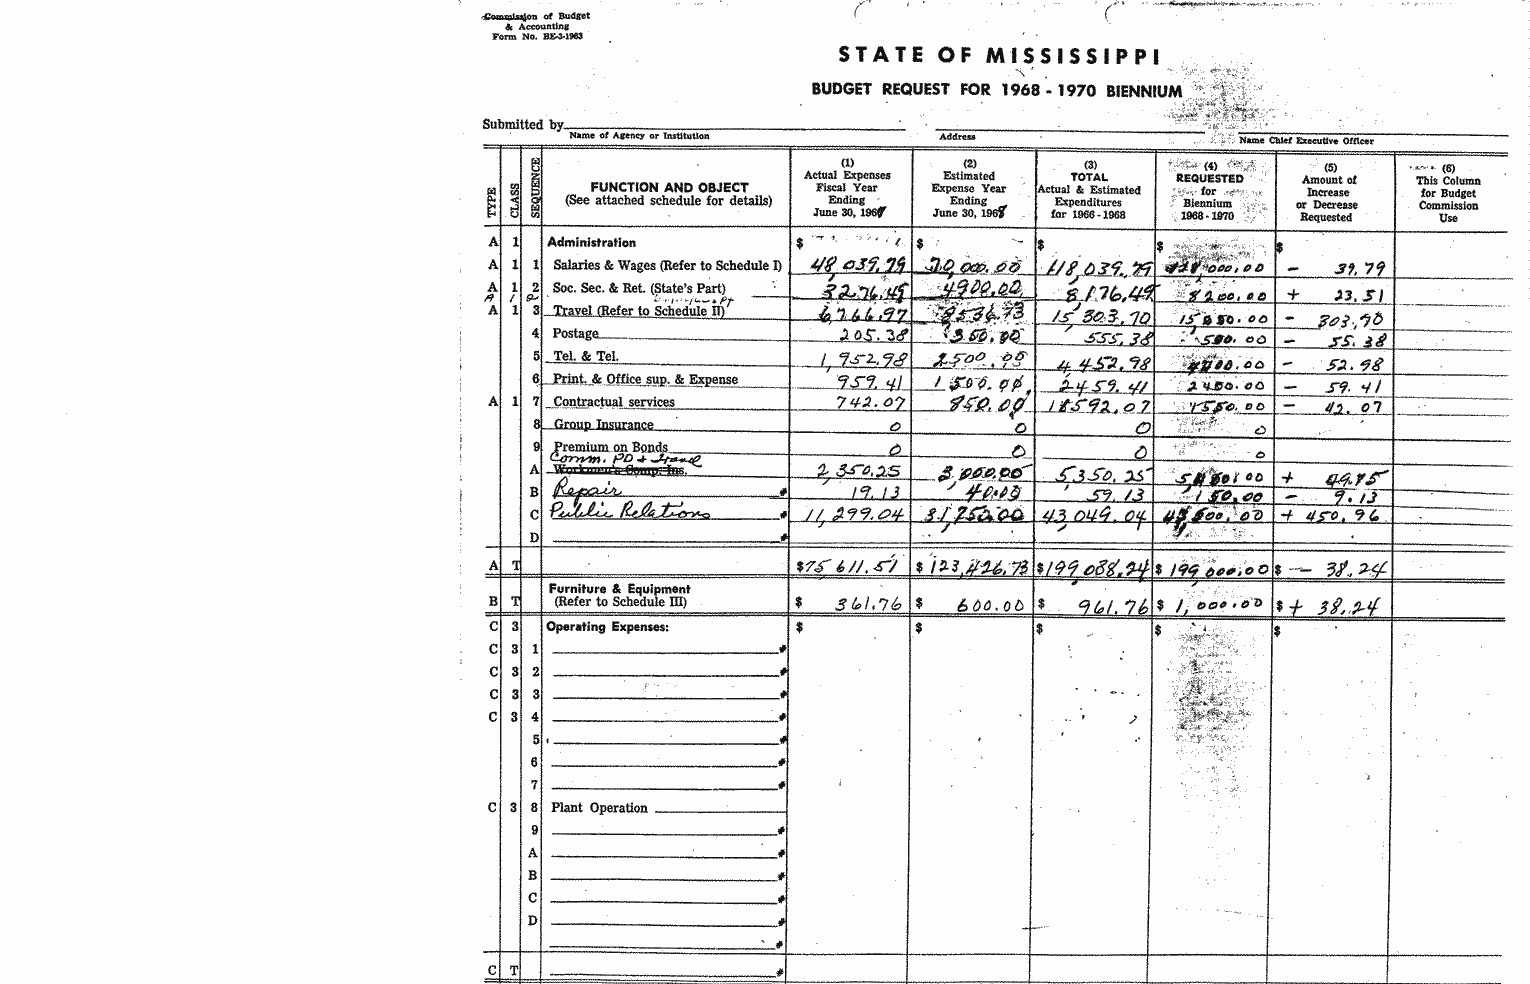 Commission of Budget
& Accounting
Form No. BE-3-1963
STATE OF MISSISSIPPI
BUDGET REQUEST FOR 1968 - 1970 BIENNIUM
Submitted by
Name of Agency or Institution Address Name Chief Executive Officer
TYPE CLASS SEQUENCE FUNCTION AND OBJECT (See attached schedule for details) (1) Actual Expenses Fiscal Year Ending June 30, 1967 (2) Estimated Expense Year Ending June 30, 1968 (3) TOTAL Actual & Estimated Expenditures for 1966 - 1968 (4) REQUESTED for Biennium 1968 - 1970 (5) Amount of Increase or Decrease Requested (6) This Column for Budget Commission Use
A 1 Administration $ $ $ $ $
A 1 1 Salaries & Wages (Refer to Schedule I) 48,039.79 70,000.00 118,039.79 000.00 - 39.79
A 1 2 Soc. Sec. & Ret. (State's Part) 3276.49 4900.00 8,176.49 8200.00 + 23.51
A 1 2
A 1 3 Travel (Refer to Schedule II) 6,766.97 8536.73 15,303.70 15,000.00 - 303.70
4 Postage 205.38 350.00 555.38 500.00 - 55.38
5 Tel. & Tel. 1,952.98 2500.00 4,452.98 4400.00 - 52.98
6 Print. & Office sup. & Expense 959.41 1500.00 2459.41 2400.00 - 59.41
A 1 7 Contractual services 742.07 850.00 1592.07 1550.00 - 42.07
8 Group Insurance 0 0 0 0
9 Premium on Bonds 0 0 0 0
Comm. PD & Travel
A Workmen's Comp. Ins. 2,350.25 3,000.00 5,350.25 5,400.00 + 49.75
B Repair 19.13 40.00 59.13 50.00 - 9.13
C Public Relations 11,299.04 31,750.00 43,049.04 43,500.00 + 450.96
D
A T $75,611.51 $123,426.73 $199,038.24 $199,000.00 $ - 38.24
Furniture & Equipment
B T (Refer to Schedule III) $ 361.76 $ 600.00 $ 961.76 $ 1,000.00 $ + 38.24
C 3 Operating Expenses: $ $ $ $ $
C 3 1
C 3 2
C 3 3
C 3 4
5
6
7
C 3 8 Plant Operation
9
A
B
C
D
C T